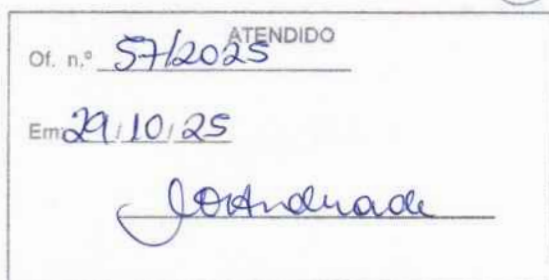 ATENDIDO
Of. n.º 57/2025
Em: 29/10/25